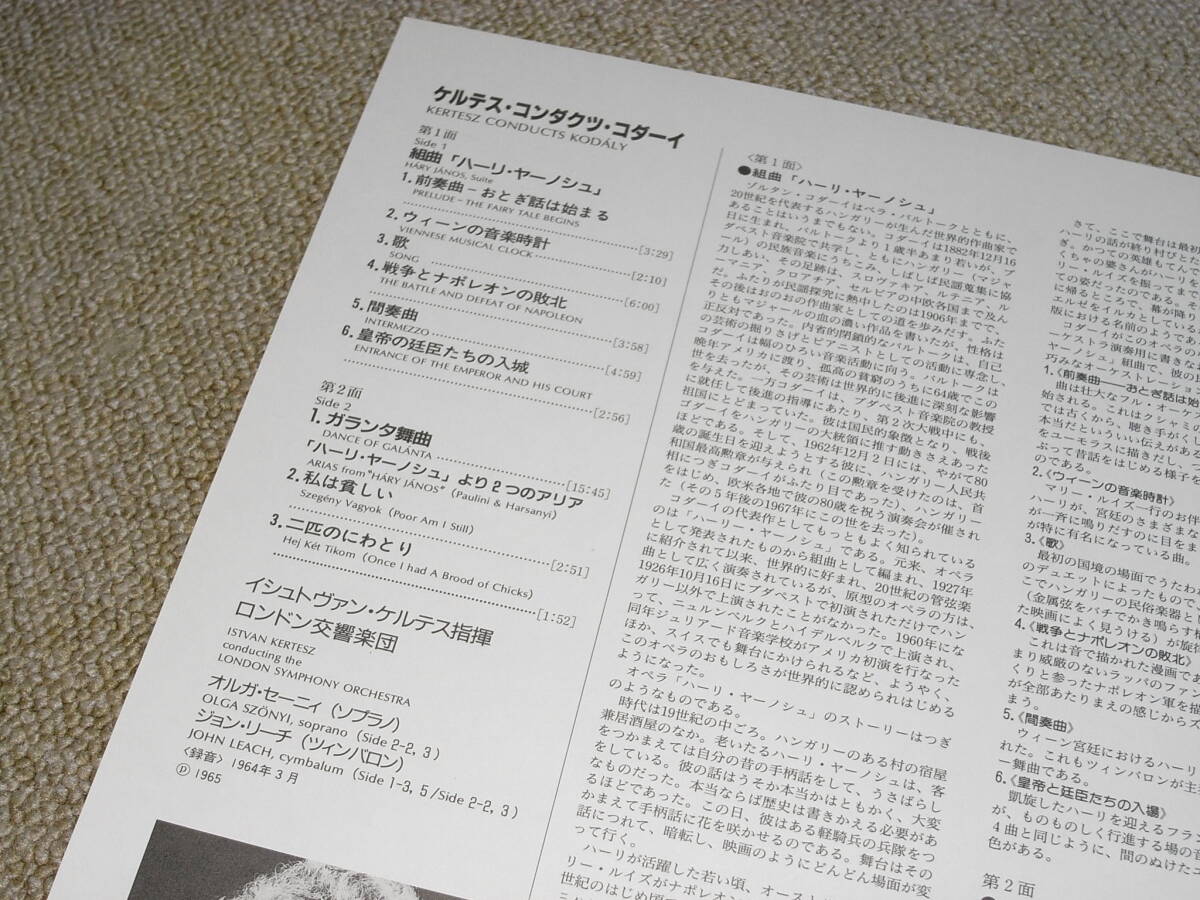 ケルテス・コンダクツ・コダーイ
KERTESZ CONDUCTS KODÁLY
第1面
Side 1
組曲「ハーリ・ヤーノシュ」
HÁRY JÁNOS, Suite
1. 前奏曲－おとぎ話は始まる
PRELUDE－THE FAIRY TALE BEGINS
[3:29]
2. ウィーンの音楽時計
VIENNESE MUSICAL CLOCK
[2:10]
3. 歌
SONG
[6:00]
4. 戦争とナポレオンの敗北
THE BATTLE AND DEFEAT OF NAPOLEON
[3:58]
5. 間奏曲
INTERMEZZO
[4:59]
6. 皇帝の廷臣たちの入城
ENTRANCE OF THE EMPEROR AND HIS COURT
[2:56]
第2面
Side 2
1. ガランタ舞曲
DANCE OF GALÁNTA
[15:45]
「ハーリ・ヤーノシュ」より2つのアリア
ARIAS from "HÁRY JÁNOS" (Paulini & Harsanyi)
2. 私は貧しい
Szegény Vagyok (Poor Am I Still)
[2:51]
3. 二匹のにわとり
Hej Két Tikom (Once I had A Brood of Chicks)
[1:52]
イシュトヴァン・ケルテス指揮
ロンドン交響楽団
ISTVAN KERTESZ
conducting the
LONDON SYMPHONY ORCHESTRA
オルガ・セーニィ（ソプラノ）
OLGA SZÖNYI, soprano (Side 2-2, 3)
ジョン・リーチ（ツィンバロン）
JOHN LEACH, cymbalum (Side 1-3, 5/Side 2-2, 3)
〈録音〉1964年3月
Ⓟ1965
〈第1面〉
●組曲「ハーリ・ヤーノシュ」
ゾルタン・コダーイはベラ・バルトークとともに、
20世紀を代表するハンガリーが生んだ世界的作曲家で
あることはいうまでもない。コダーイは1882年12月16
日に生まれ、バルトークより1歳半あまり若いが、ブ
ダペスト音楽院で共学し、ともにハンガリー（マジャ
ール）の民族音楽にうちこみ、しばしば民謡蒐集に協
力しあい、その足跡は、スロヴァキア、ルテニア、ル
ーマニア、クロアチア、セルビアの中欧各国まで及ん
だ。ふたりが民謡探究に熱中したのは1906年までで、
その後はおのおの作曲家としての道を歩みだす。ふた
りともマジャールの血の濃い作品を書いたが、性格は
正反対であった。内省的閉鎖的なバルトークは、自己
の芸術の掘りさげとピアニストとしての活動に専念し、
コダーイは幅のひろい音楽活動に向う。バルトークは
晩年アメリカに渡り、孤高の貧窮のうちに64歳でこの
世を去ったが、その芸術は世界的に後進に深刻な影響
を与えた。一方コダーイは、ブダペスト音楽院の教授
に就任して後進の指導にあたり、第2次大戦中にも、
祖国にとどまっていた。彼は国民的象徴となり、戦後
コダーイをハンガリーの大統領に推す動きさえあった
ほどである。そして、1962年12月2日には、やがて80
歳の誕生日を迎えようとする彼に、ハンガリー人民共
和国最高勲章が与えられ（この勲章を受けたのは、首
相につぎコダーイがふたり目であった）、ハンガリー
をはじめ、欧米各地で彼の80歳を祝う演奏会が催され
た（その5年後の1967年にこの世を去った）。
コダーイの代表作としてもっともよく知られている
のは「ハーリー・ヤーノシュ」である。元来、オペラ
として発表されたものから組曲として編まれ、1927年
に紹介されて以来、世界的に好まれ、20世紀の管弦楽
曲として広く演奏されているが、原型のオペラの方は、
1926年10月16日にブダペストで初演されただけでハン
ガリー以外で上演されたことがなかった。1960年にな
って、ニュルンベルクとハイデルベルクで上演され、
同年ジュリアード音楽学校がアメリカ初演を行なった
ほか、スイスでも舞台にかけられるなど、ようやく、
このオペラのおもしろさが世界的に認められはじめる
ようになった。
オペラ「ハーリ・ヤーノシュ」のストーリーはつぎ
のようなものである。
時代は19世紀の中ごろ。ハンガリーのある村の宿屋
兼居酒屋のなか。老いたるハーリ・ヤーノシュは、客
をつかまえては自分の昔の手柄話をして、うさばらし
をしている。彼の話はうそか本当かはともかく、大変
なものだった。本当ならば歴史は書きかえる必要があ
るほどであった。この日、彼はある軽騎兵の兵隊をつ
かまえて手柄話に花を咲かせるのである。舞台はその
話につれて、暗転し、映画のようにどんどん場面が変
って行く。
ハーリが活躍した若い頃、オースト
リー・ルイズがナポレオン
世紀のはじめ頃
さて、ここで舞台は最初
ハーリの話が終り村びとた
ぎ。かつての英雄もてんで
くちゃの婆さんがハーリを
リー・ルイズを振ってまで
ての姿だったのである。
に帰るところで、幕が降り
エルゼをイルカとしている
版における名前のようであ
コダーイがこのオペラの
ーケストラ演奏用に書きな
ヤーノシュ」組曲で、彼の
巧みなオーケストレーション
1.《前奏曲──おとぎ話は始
曲は壮大なフル・オーケス
始される。これはクシャミの
では古くから、聴き手がくし
本当だといういい伝えがある
をユーモラスに描きだし、
ぶって昔話をはじめる様子を
のである。
2.《ウィーンの音楽時計》
マリー・ルイズ一行のお伴
ハーリが、宮廷のさまざまな
が一斉に鳴りだすのに目をま
が特に有名になっている曲。
3.《歌》
最初の国境の場面でうたわ
のデュエットによったもので
こでハンガリーの民俗楽器と
（金属弦をバチでかき鳴らす
た映画によく見うける）が旋律
4.《戦争とナポレオンの敗北》
これは音で描かれた漫画であ
まり威厳のないラッパのファン
くりと参ったナポレオン軍を描
が全部あたりまえの感じからズ
まう。
5.《間奏曲》
ウィーン宮廷におけるハーリ
れた。これもツィンバロンが主
一舞曲である。
6.《皇帝と廷臣たちの入場》
凱旋したハーリを迎えるフラン
が、ものものしく行進する場の音
4曲と同じように、間のぬけたユ
色がある。
第2面